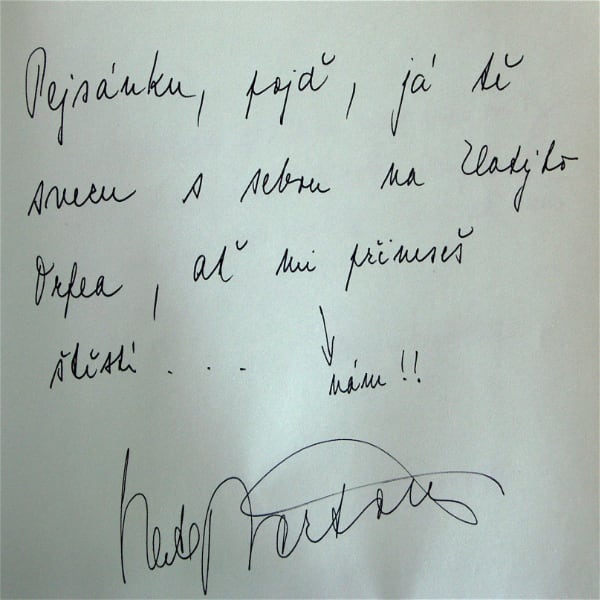 Pejsánku, pojď, já tě
svezu s sebou na Zlatýho
Orfea, ať mi přineseš
štěstí . . .
nám!!